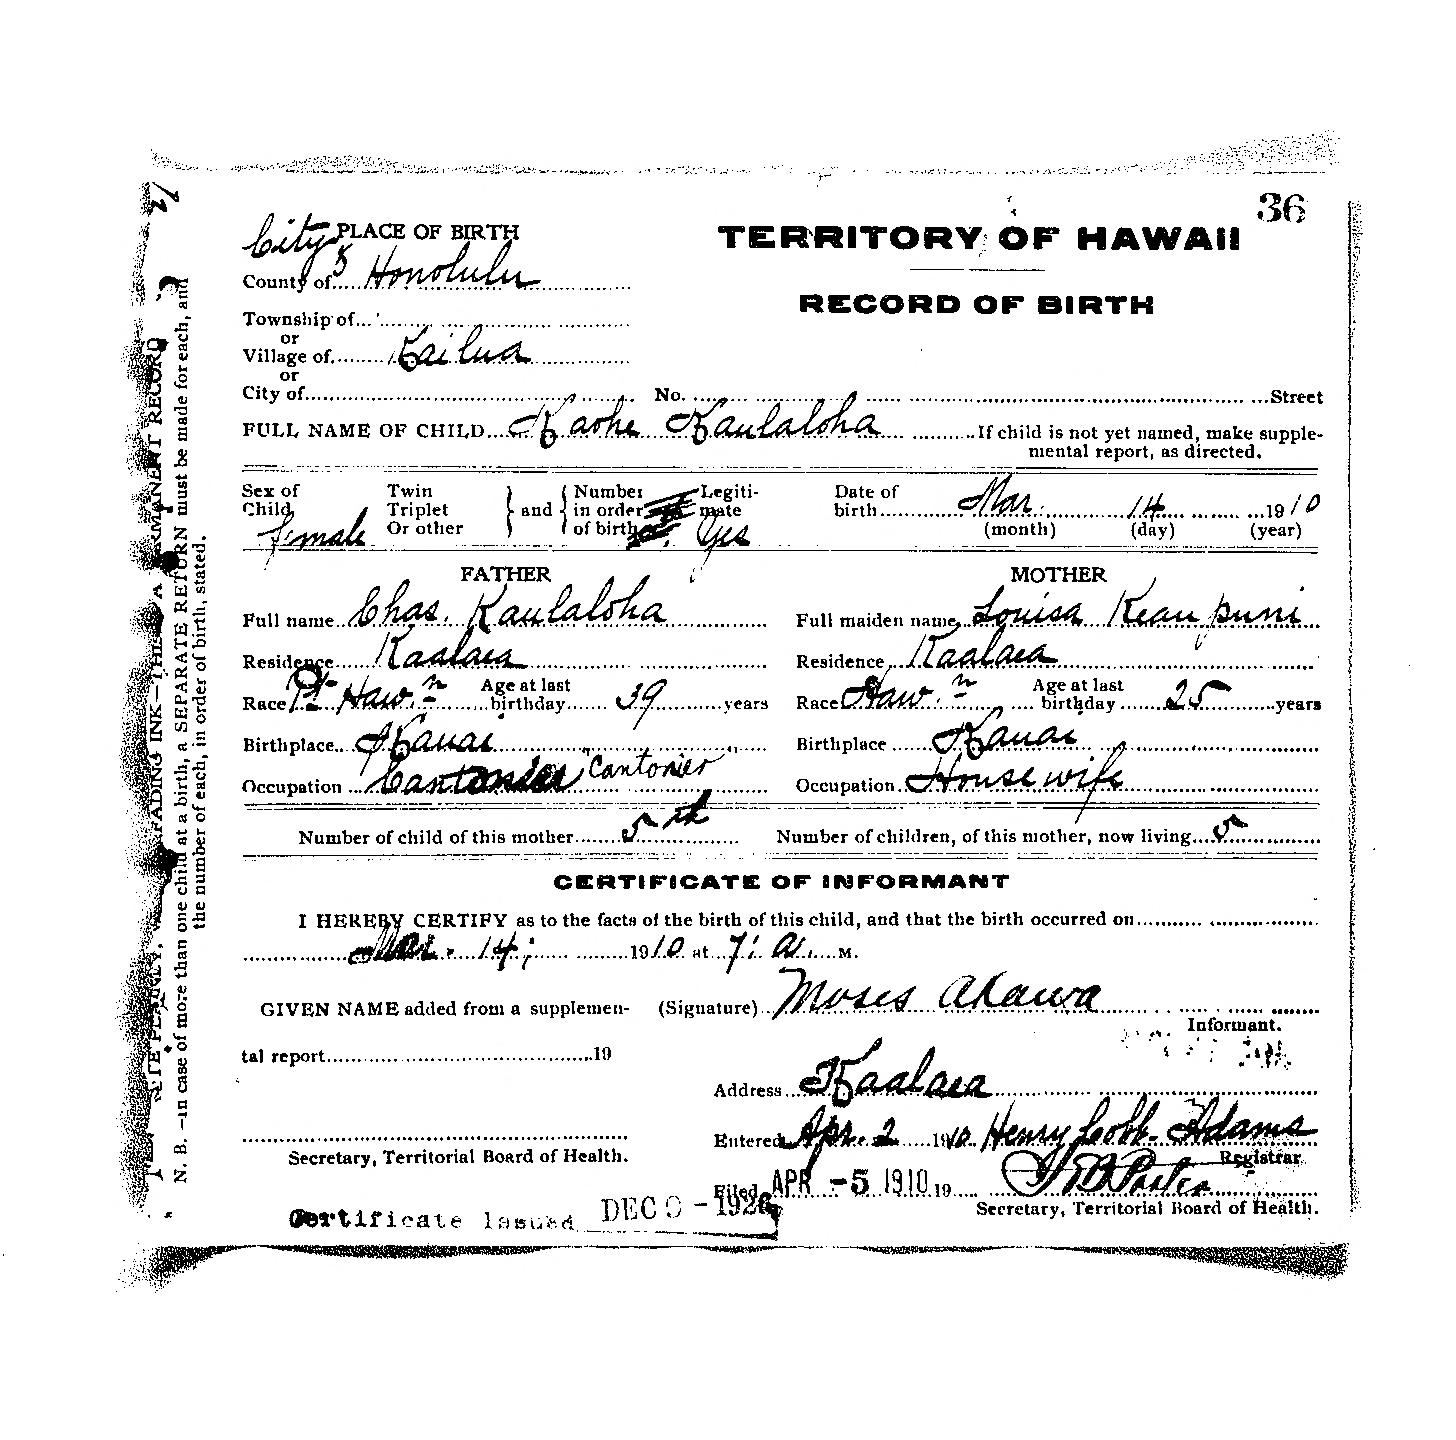 36
City PLACE OF BIRTH
TERRITORY OF HAWAII
County of..... Honolulu
RECORD OF BIRTH
Township of...
or
Village of........ Kailua
or
City of........ No. ........ Street
FULL NAME OF CHILD... Kaohe Kaulaloha ..........If child is not yet named, make supple-
mental report, as directed.
Sex of Child female
Twin Triplet Or other } and { Number in order of birth
Legiti- mate Yes
Date of birth........ Mar. 14 1910
(month) (day) (year)
FATHER MOTHER
Full name Chas. Kaulaloha Full maiden name Louisa Keaupuni
Residence.... Kaalaea Residence Kaalaea
Race Pt Haw.n Age at last birthday...... 39 ..........years Race Haw.n Age at last birthday ...... 25 ..........years
Birthplace.. Kauai Birthplace ..... Kauai
Occupation ... "Cantonier" Occupation. Housewife
Number of child of this mother....... 5th Number of children, of this mother, now living... 5
CERTIFICATE OF INFORMANT
I HEREBY CERTIFY as to the facts of the birth of this child, and that the birth occurred on
Mar. 14, 1910 at 7: a. M.
GIVEN NAME added from a supplemen- (Signature) Moses Akawa
Informant.
tal report........19
Address Kaalaea
Entered Apr. 2 1910 Henry Cobb Adams
Secretary, Territorial Board of Health. Registrar
Filed APR -5 1910 19
Certificate Issued DEC 9 - 1926 Secretary, Territorial Board of Health.
N. B. —In case of more than one child at a birth, a SEPARATE RETURN must be made for each, and
the number of each, in order of birth, stated.